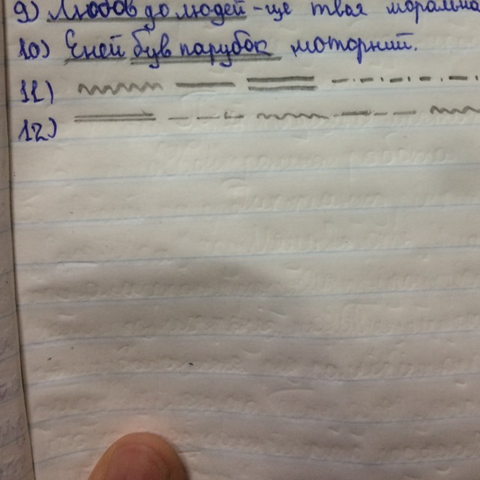 9) Любов до людей - це твоя моральна
10) Еней був парубок моторний.
11)
12)